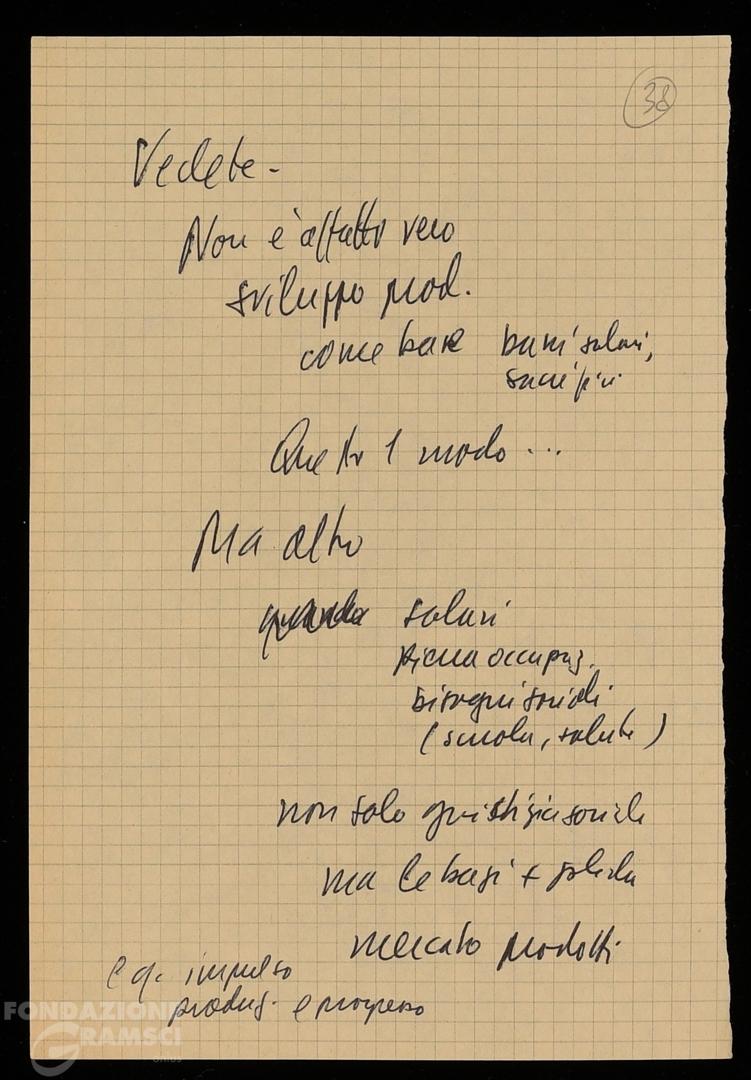 38
Vedete -
Non è affatto vero
sviluppo prod.
come base bassi salari,
sacrifici
Questo 1 modo ...
Ma altro
quando salari
piena occupaz.
bisogni sociali
(scuola, salute)
non solo giustizia sociale
ma le basi + solida
mercato prodotti
e qi. impulso
produz. e progresso
FONDAZIONE
GRAMSCI
ONLUS